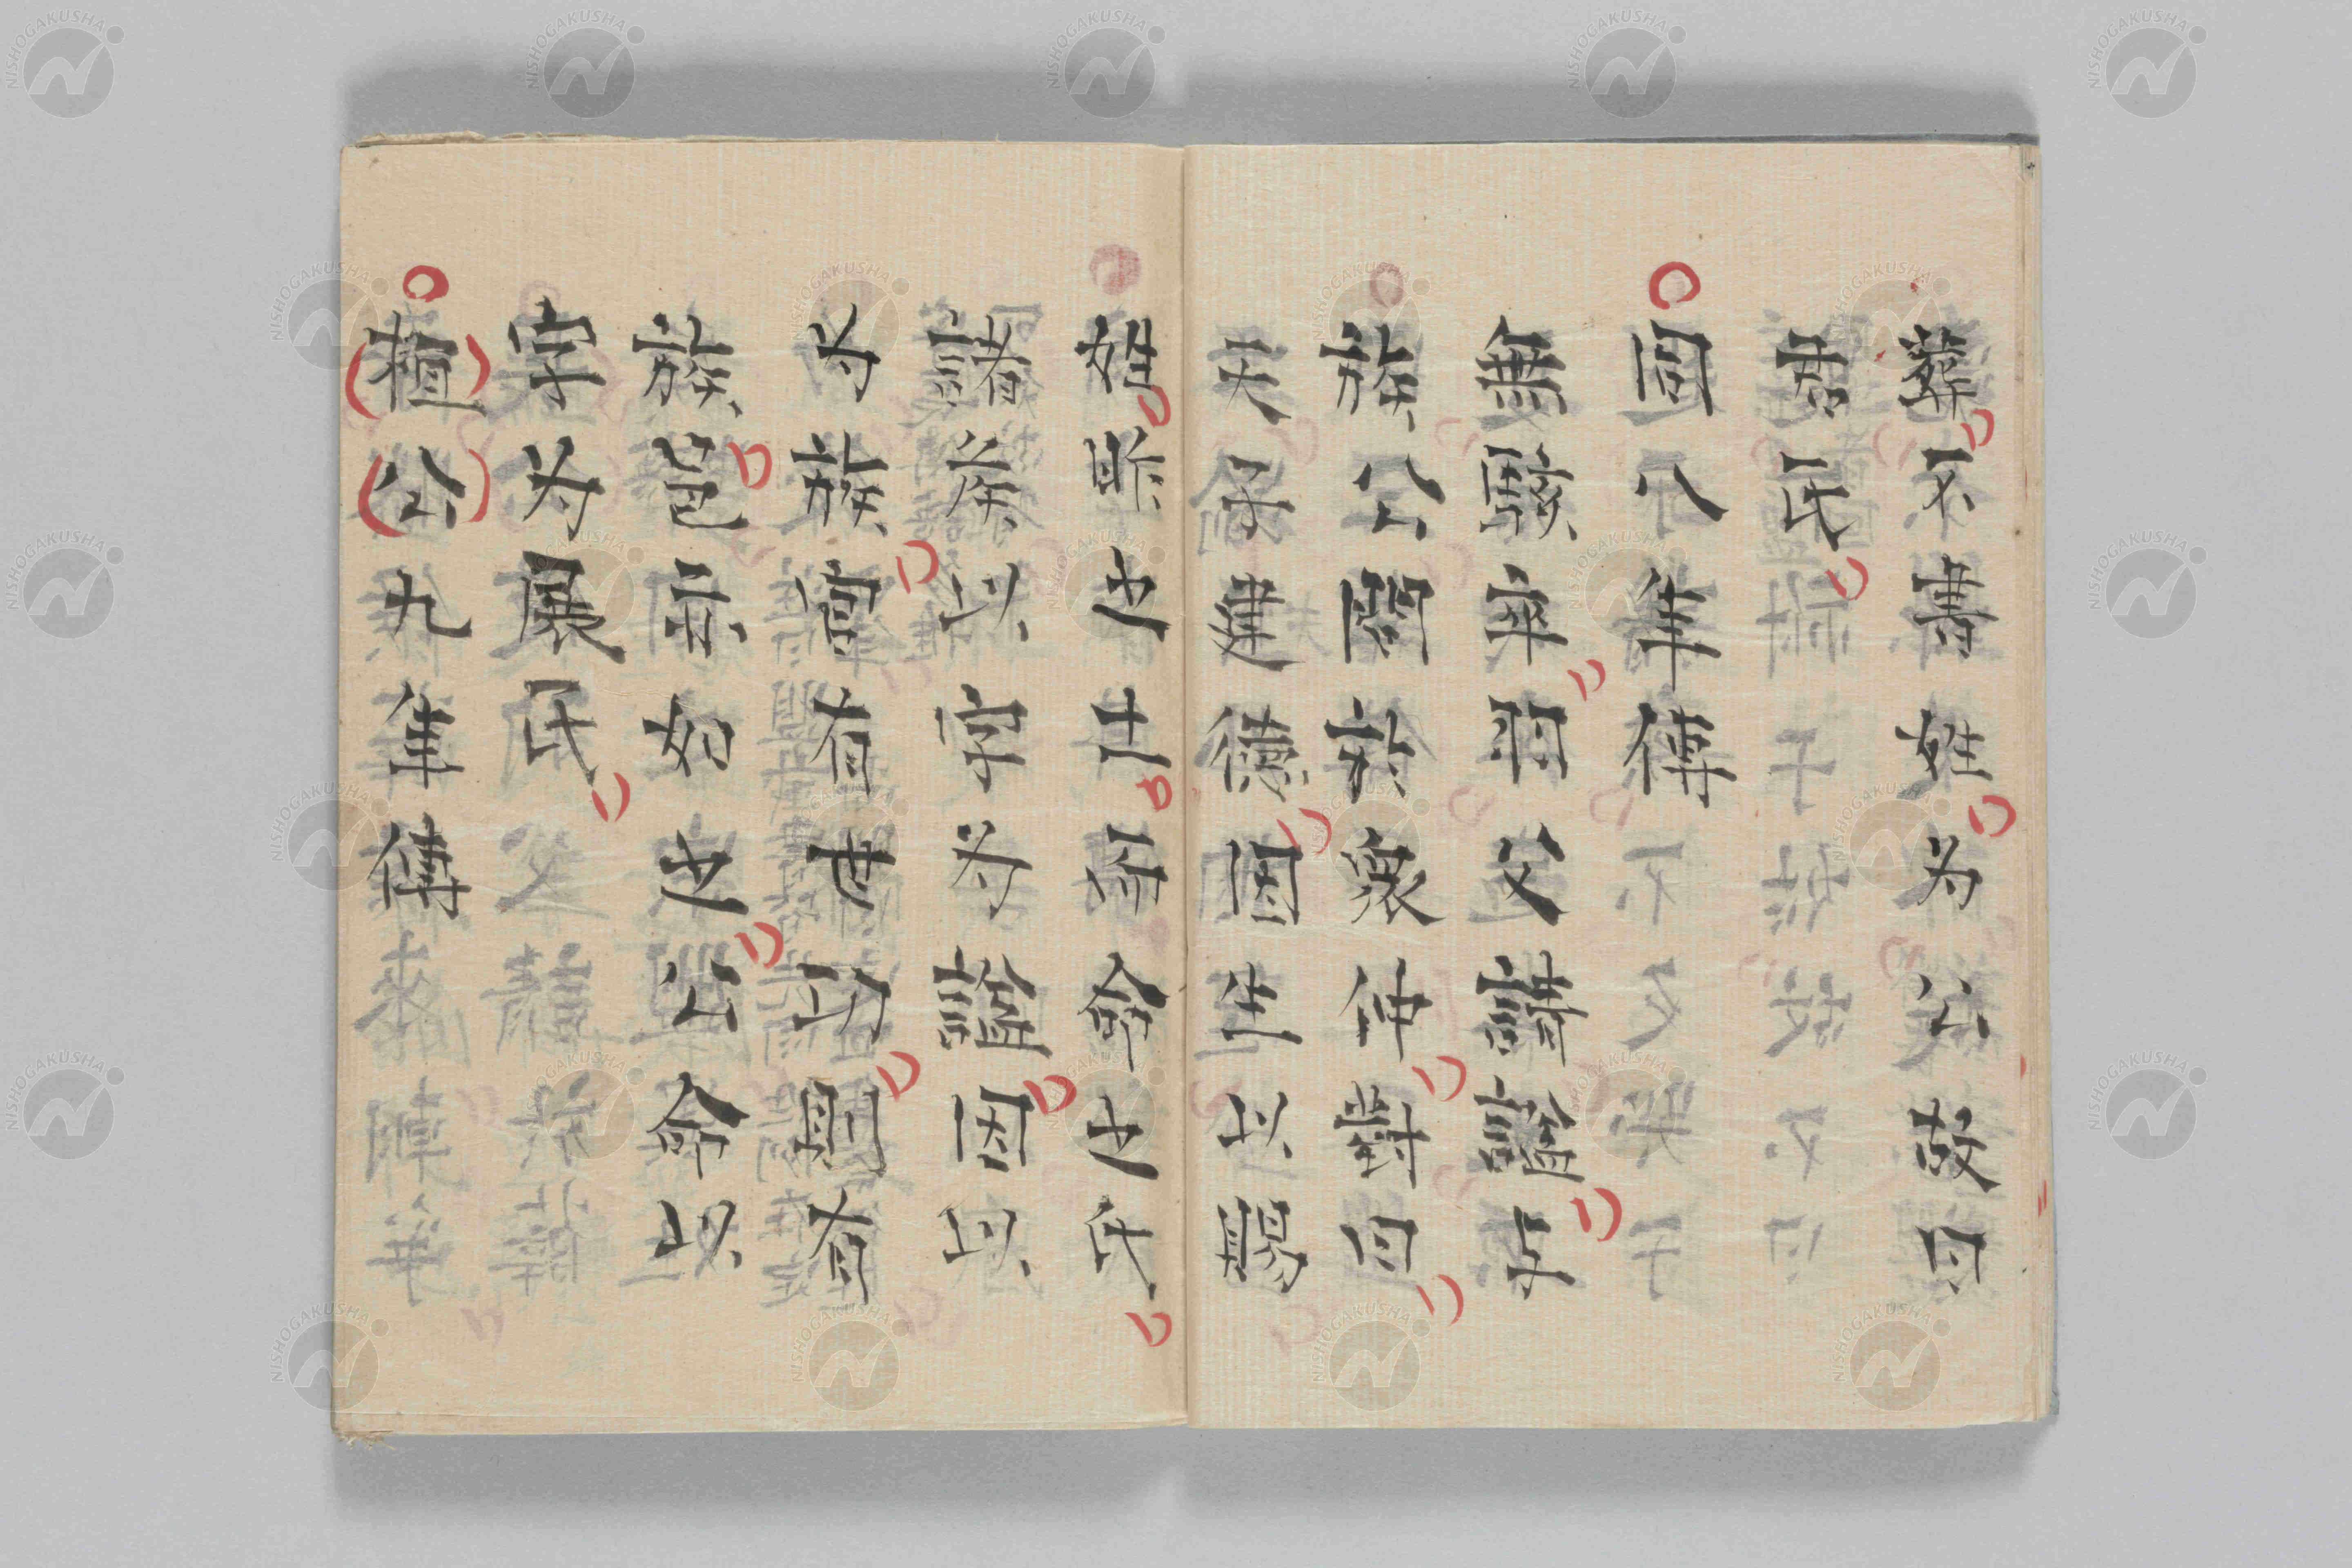 葬不書姓為公故曰
君氏
同八年傳
無駭卒羽父請謚與
族公問於衆仲對曰
天子建德因生以賜
姓胙之土而命之氏
諸侯以字為謚因以
為族官有世功則有
族邑亦如之公命以
字為展氏
桓公九年傳
NISHOGAKUSHA